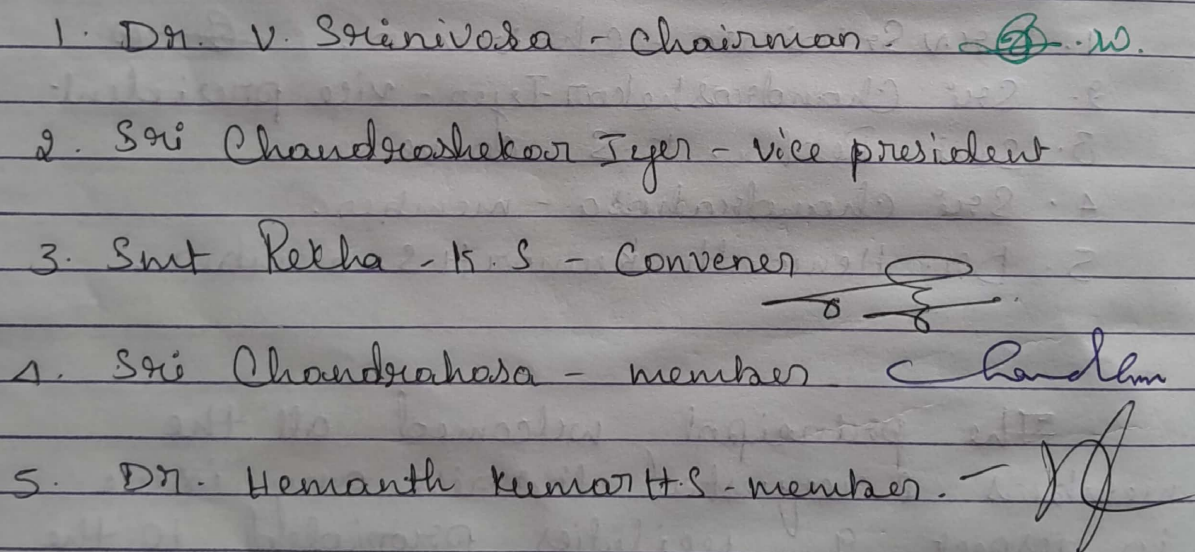 1. Dr. V. Srinivosa - Chairman
2. Sri Chandrashekar Iyer - vice president
3. Smt Rekha - K. S - Convener
4. Sri Chandrahasa - member
5. Dr. Hemanth Kumar H.S - member. -